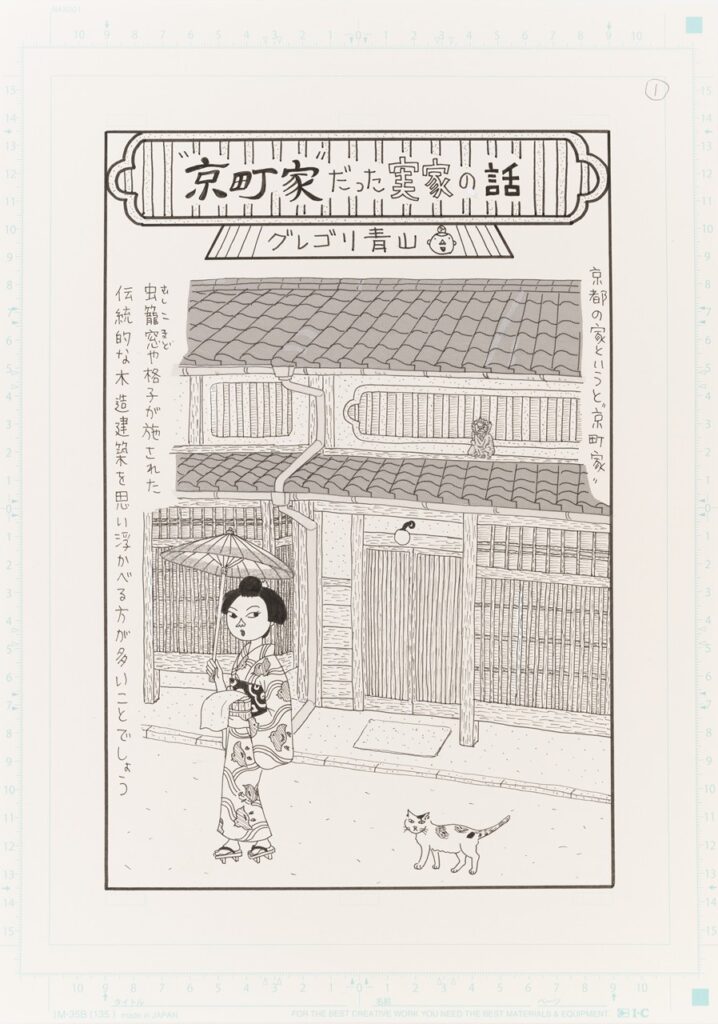 ①
"京町家"だった実家の話
グレゴリ青山
京都の家というと"京町家"
虫籠窓や格子が施された
むしこまど
伝統的な木造建築を思い浮かべる方が多いことでしょう
タイトル
名前
ページ
IM-35B (135) made in JAPAN
FOR THE BEST CREATIVE WORK YOU NEED THE BEST MATERIALS & EQUIPMENT.
I·C